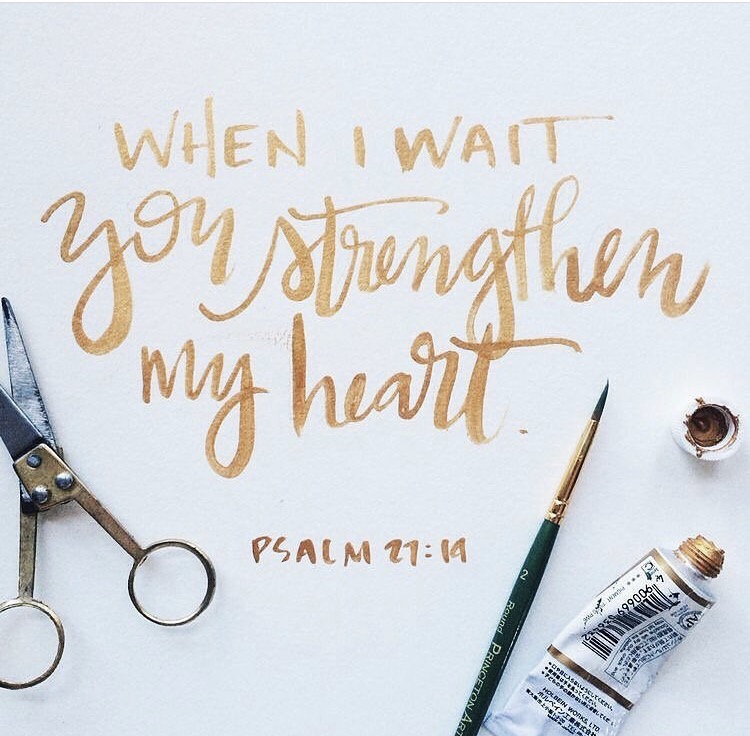 WHEN I WAIT
you strengthen
my heart.
PSALM 27:14
2 Round PRINCETON ART
HOLBEIN WORKS, LTD.